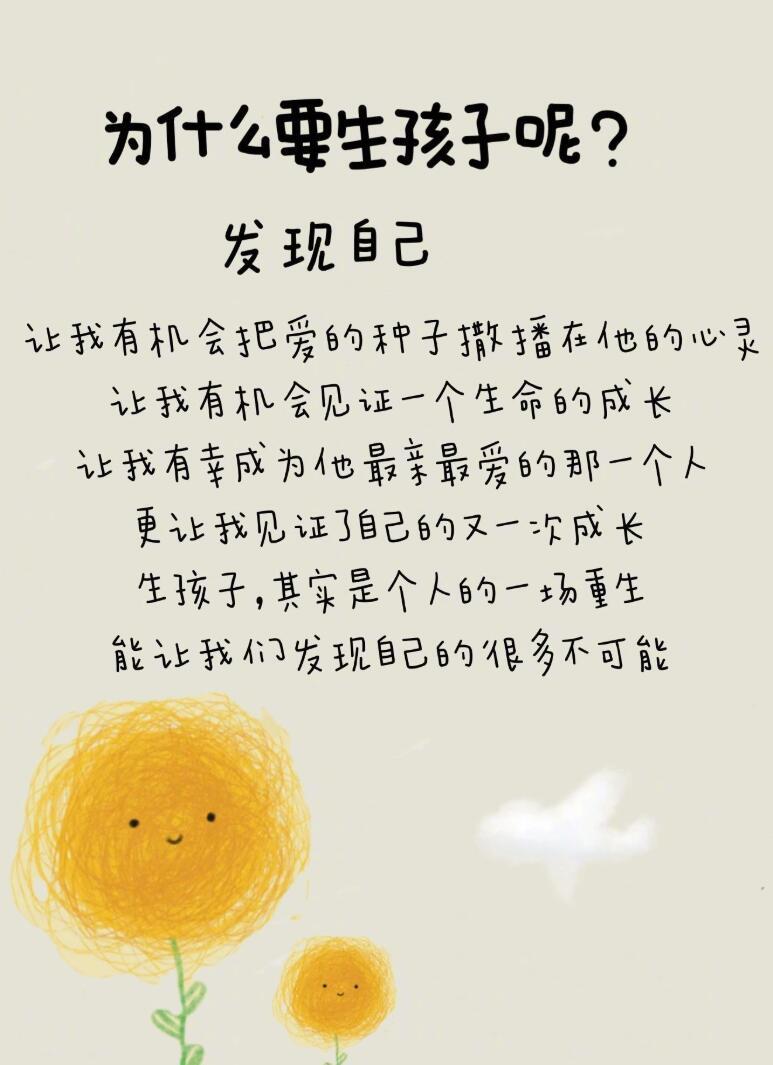 为什么要生孩子呢?
发现自己
让我有机会把爱的种子撒播在他的心灵
让我有机会见证一个生命的成长
让我有幸成为他最亲最爱的那一个人
更让我见证了自己的又一次成长
生孩子,其实是个人的一场重生
能让我们发现自己的很多不可能